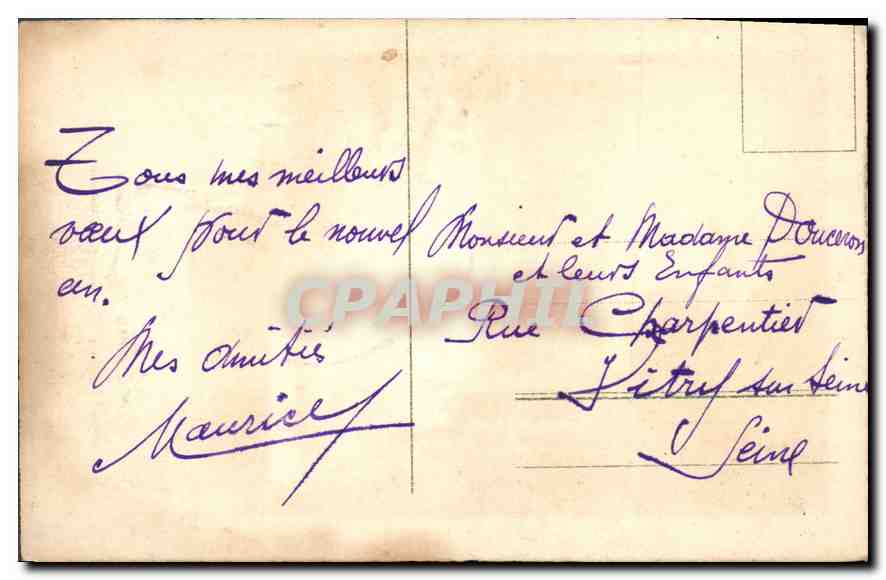 Tous mes meilleurs
vœux pour le nouvel
an.
Mes amitiés
Maurice
Monsieur et Madame Douceron
et leurs Enfants
Rue Charpentier
Vitry sur Seine
Seine
CPAPHIL